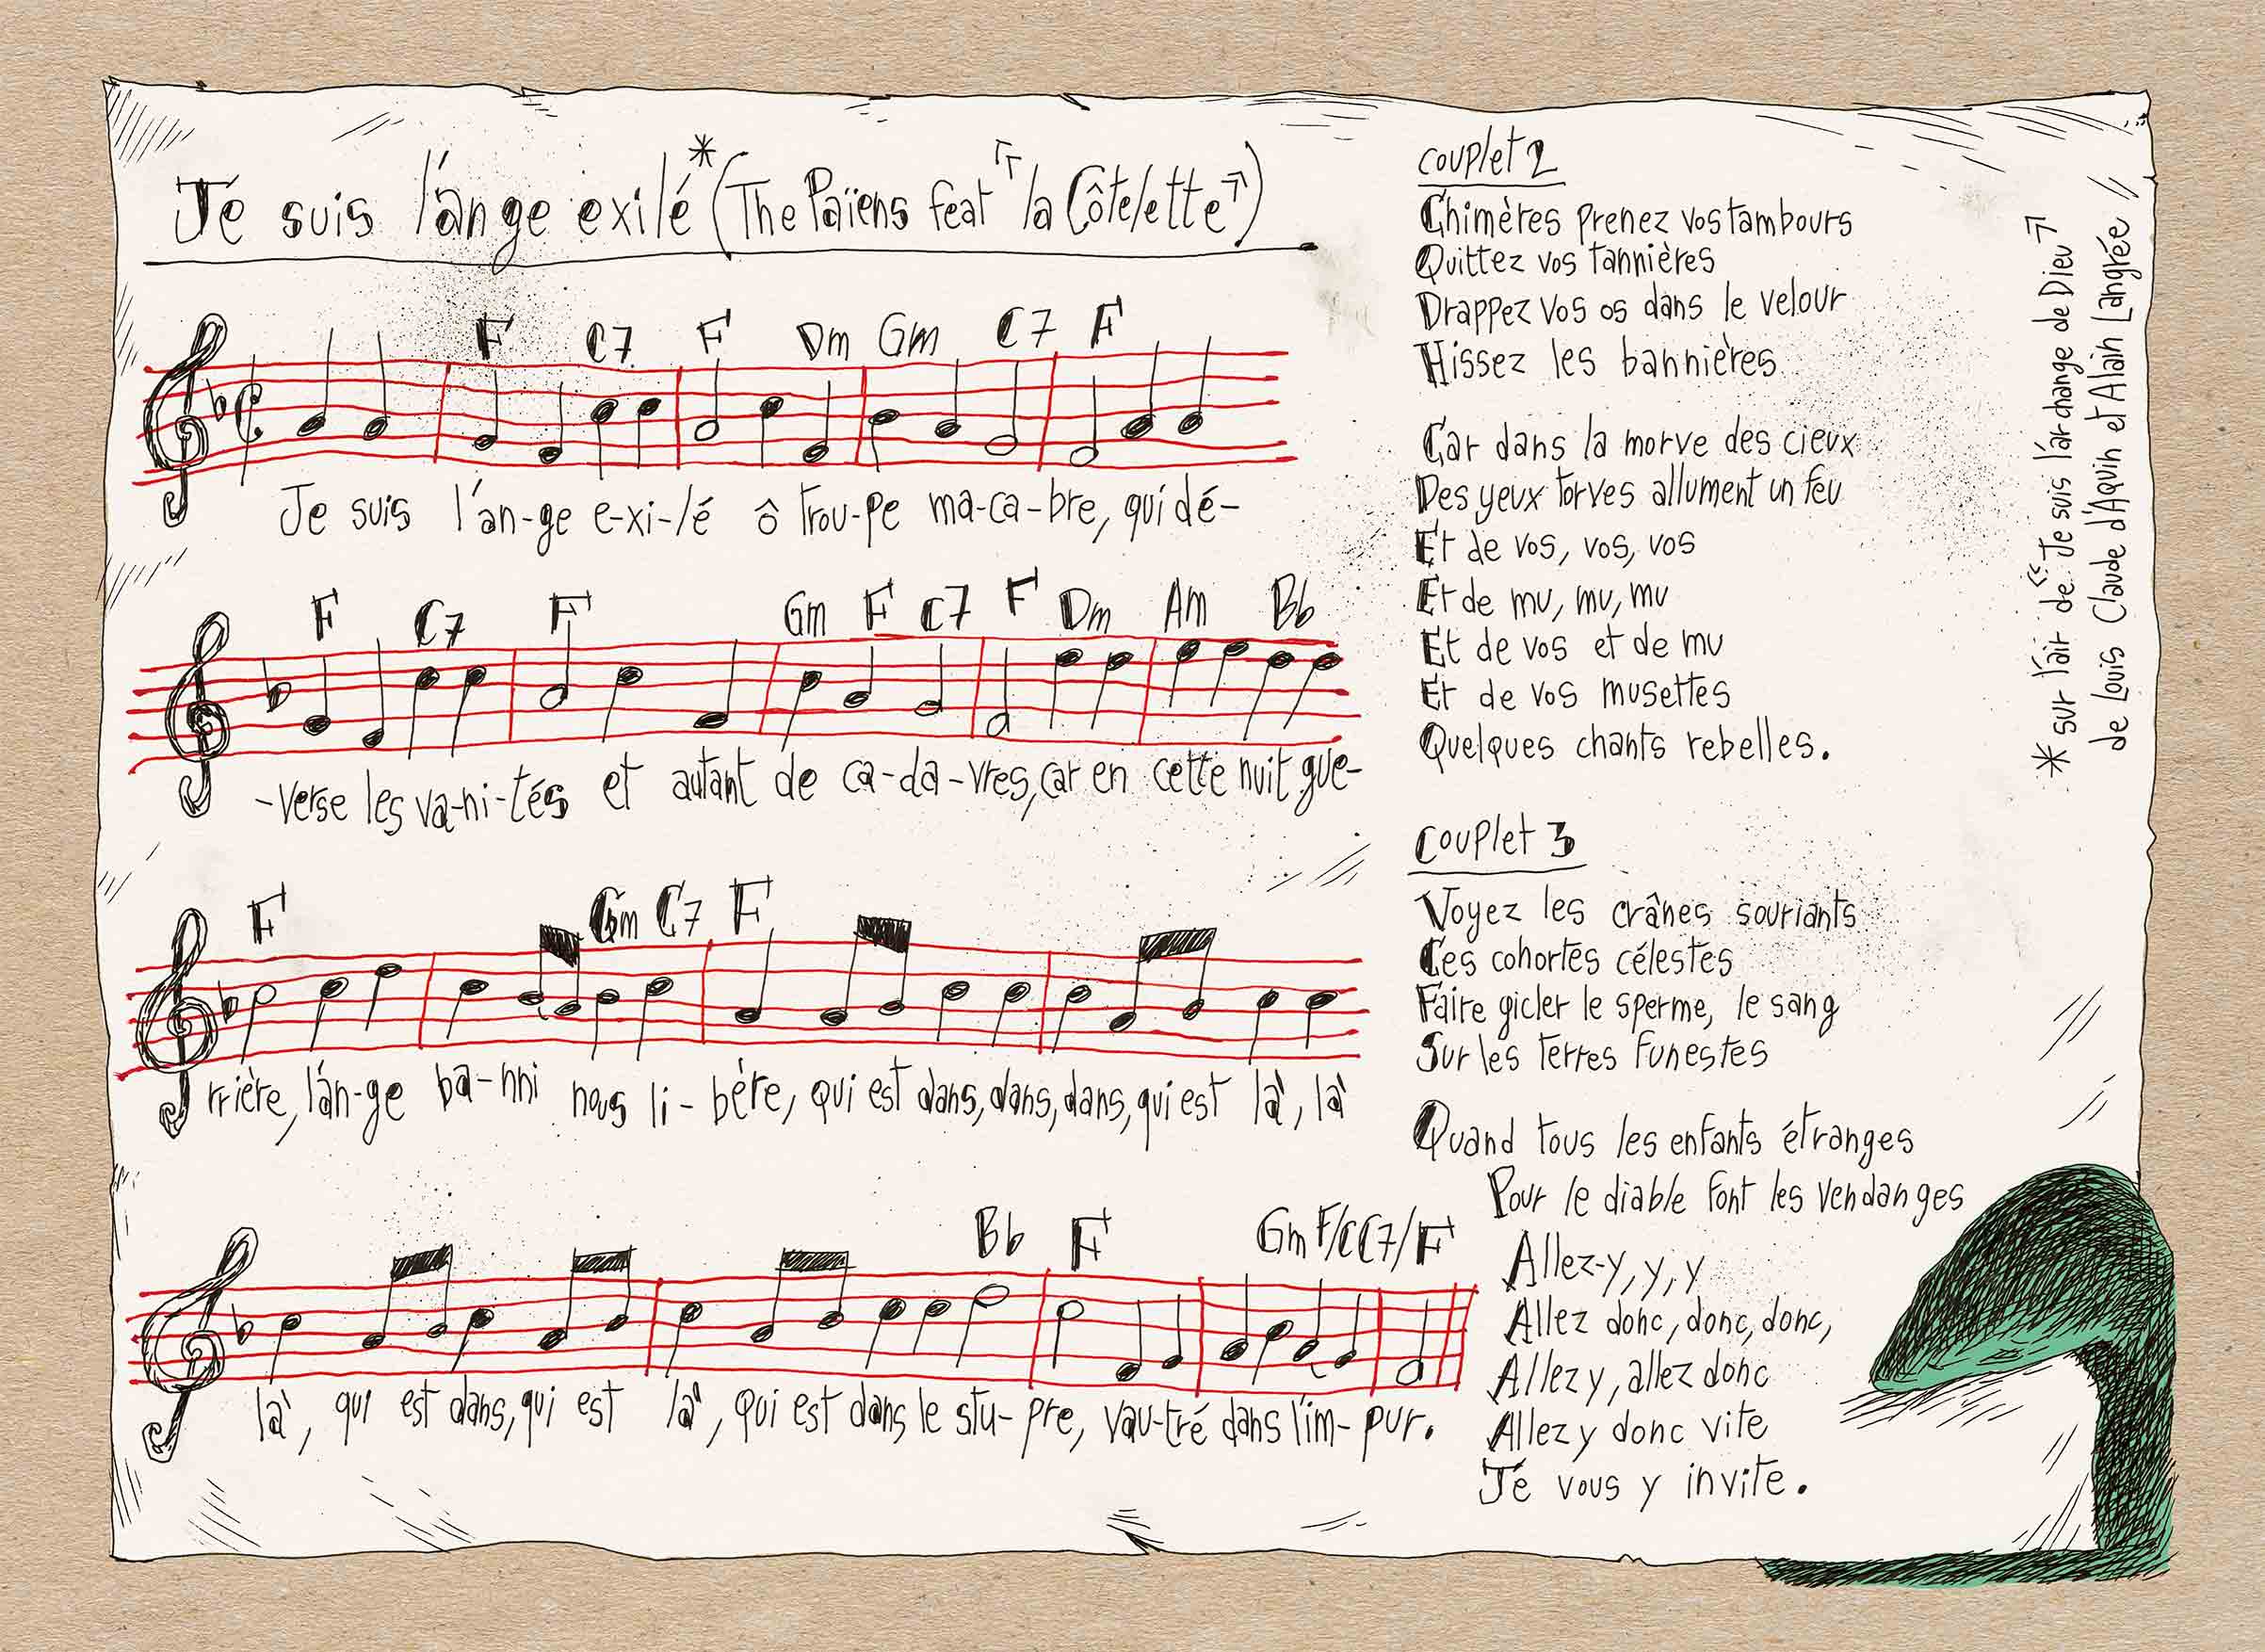 Je suis l'ange exilé* (The Païens feat "la Côtelette")
F C7 F Dm Gm C7 F
Je suis l'an-ge e-xi-lé ô trou-pe ma-ca-bre, qui dé-
F C7 F Gm F C7 F Dm Am Bb
-verse les va-ni-tés et autant de ca-da-vres, car en cette nuit gue-
F Gm C7 F
rrière, l'an-ge ba-nni nous li-bère, qui est dans, dans, dans, qui est là, là
Bb F Gm F/C C7/F
là, qui est dans, qui est là, qui est dans le stu-pre, vau-tré dans l'im-pur.
couplet 2
Chimères prenez vos tambours
Quittez vos tannières
Drappez vos os dans le velour
Hissez les bannières
Car dans la morve des cieux
Des yeux torves allument un feu
Et de vos, vos, vos
Et de mu, mu, mu
Et de vos et de mu
Et de vos musettes
Quelques chants rebelles.
couplet 3
Voyez les crânes souriants
Ces cohortes célestes
Faire gicler le sperme, le sang
Sur les terres funestes
Quand tous les enfants étranges
Pour le diable font les vendanges
Allez-y, y, y
Allez donc, donc, donc,
Allez y, allez donc
Allez y donc vite
Je vous y invite.
* sur l'air de "Je suis l'archange de Dieu"
de Louis Claude d'Aquin et Alain Langrée